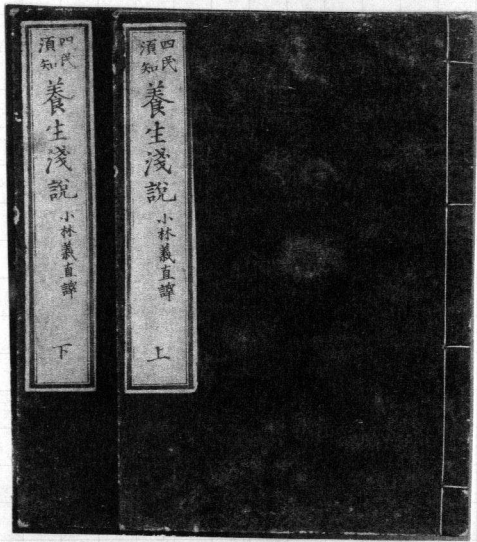 四民
須知
養生淺說
小林義直譯
上
四民
須知
養生淺說
小林義直譯
下